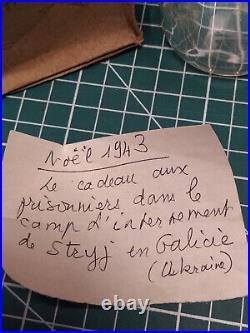 Noël 1943
Le cadeau aux
prisonniers dans le
camp d'internement
de Stryj en Galicie
(Ukraine)